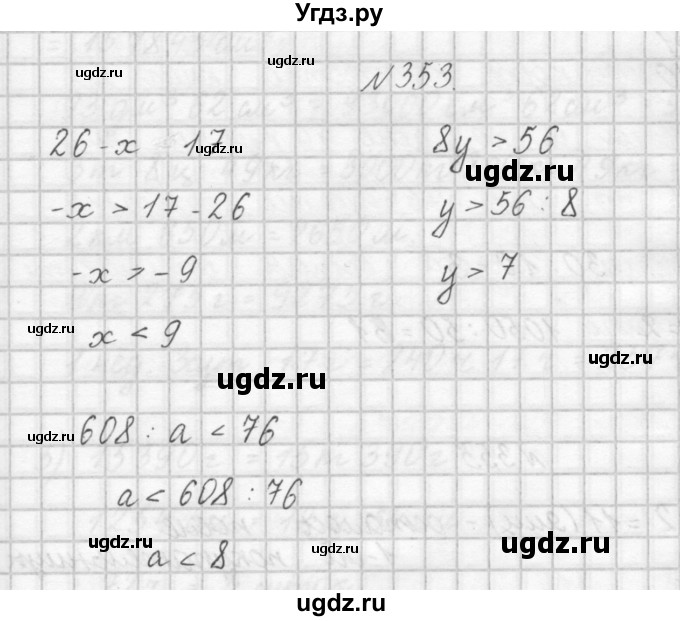 Угдз.ру
ugdz.ru
ugdz.ru
№353.
26 - x 17
ugdz.ru
-x > 17 - 26
-x > - 9
ugdz.ru
x < 9
8y > 56
ugdz.ru
y > 56 : 8
y > 7
ugdz.ru
ugdz.ru
ugdz.ru
608 : a < 76
a < 608 : 76
ugdz.ru
a < 8
ugdz.ru
ugdz.ru